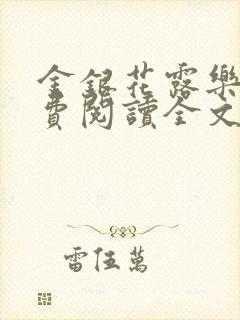 金銀花露樂
費閱讀全文
雷伍萬